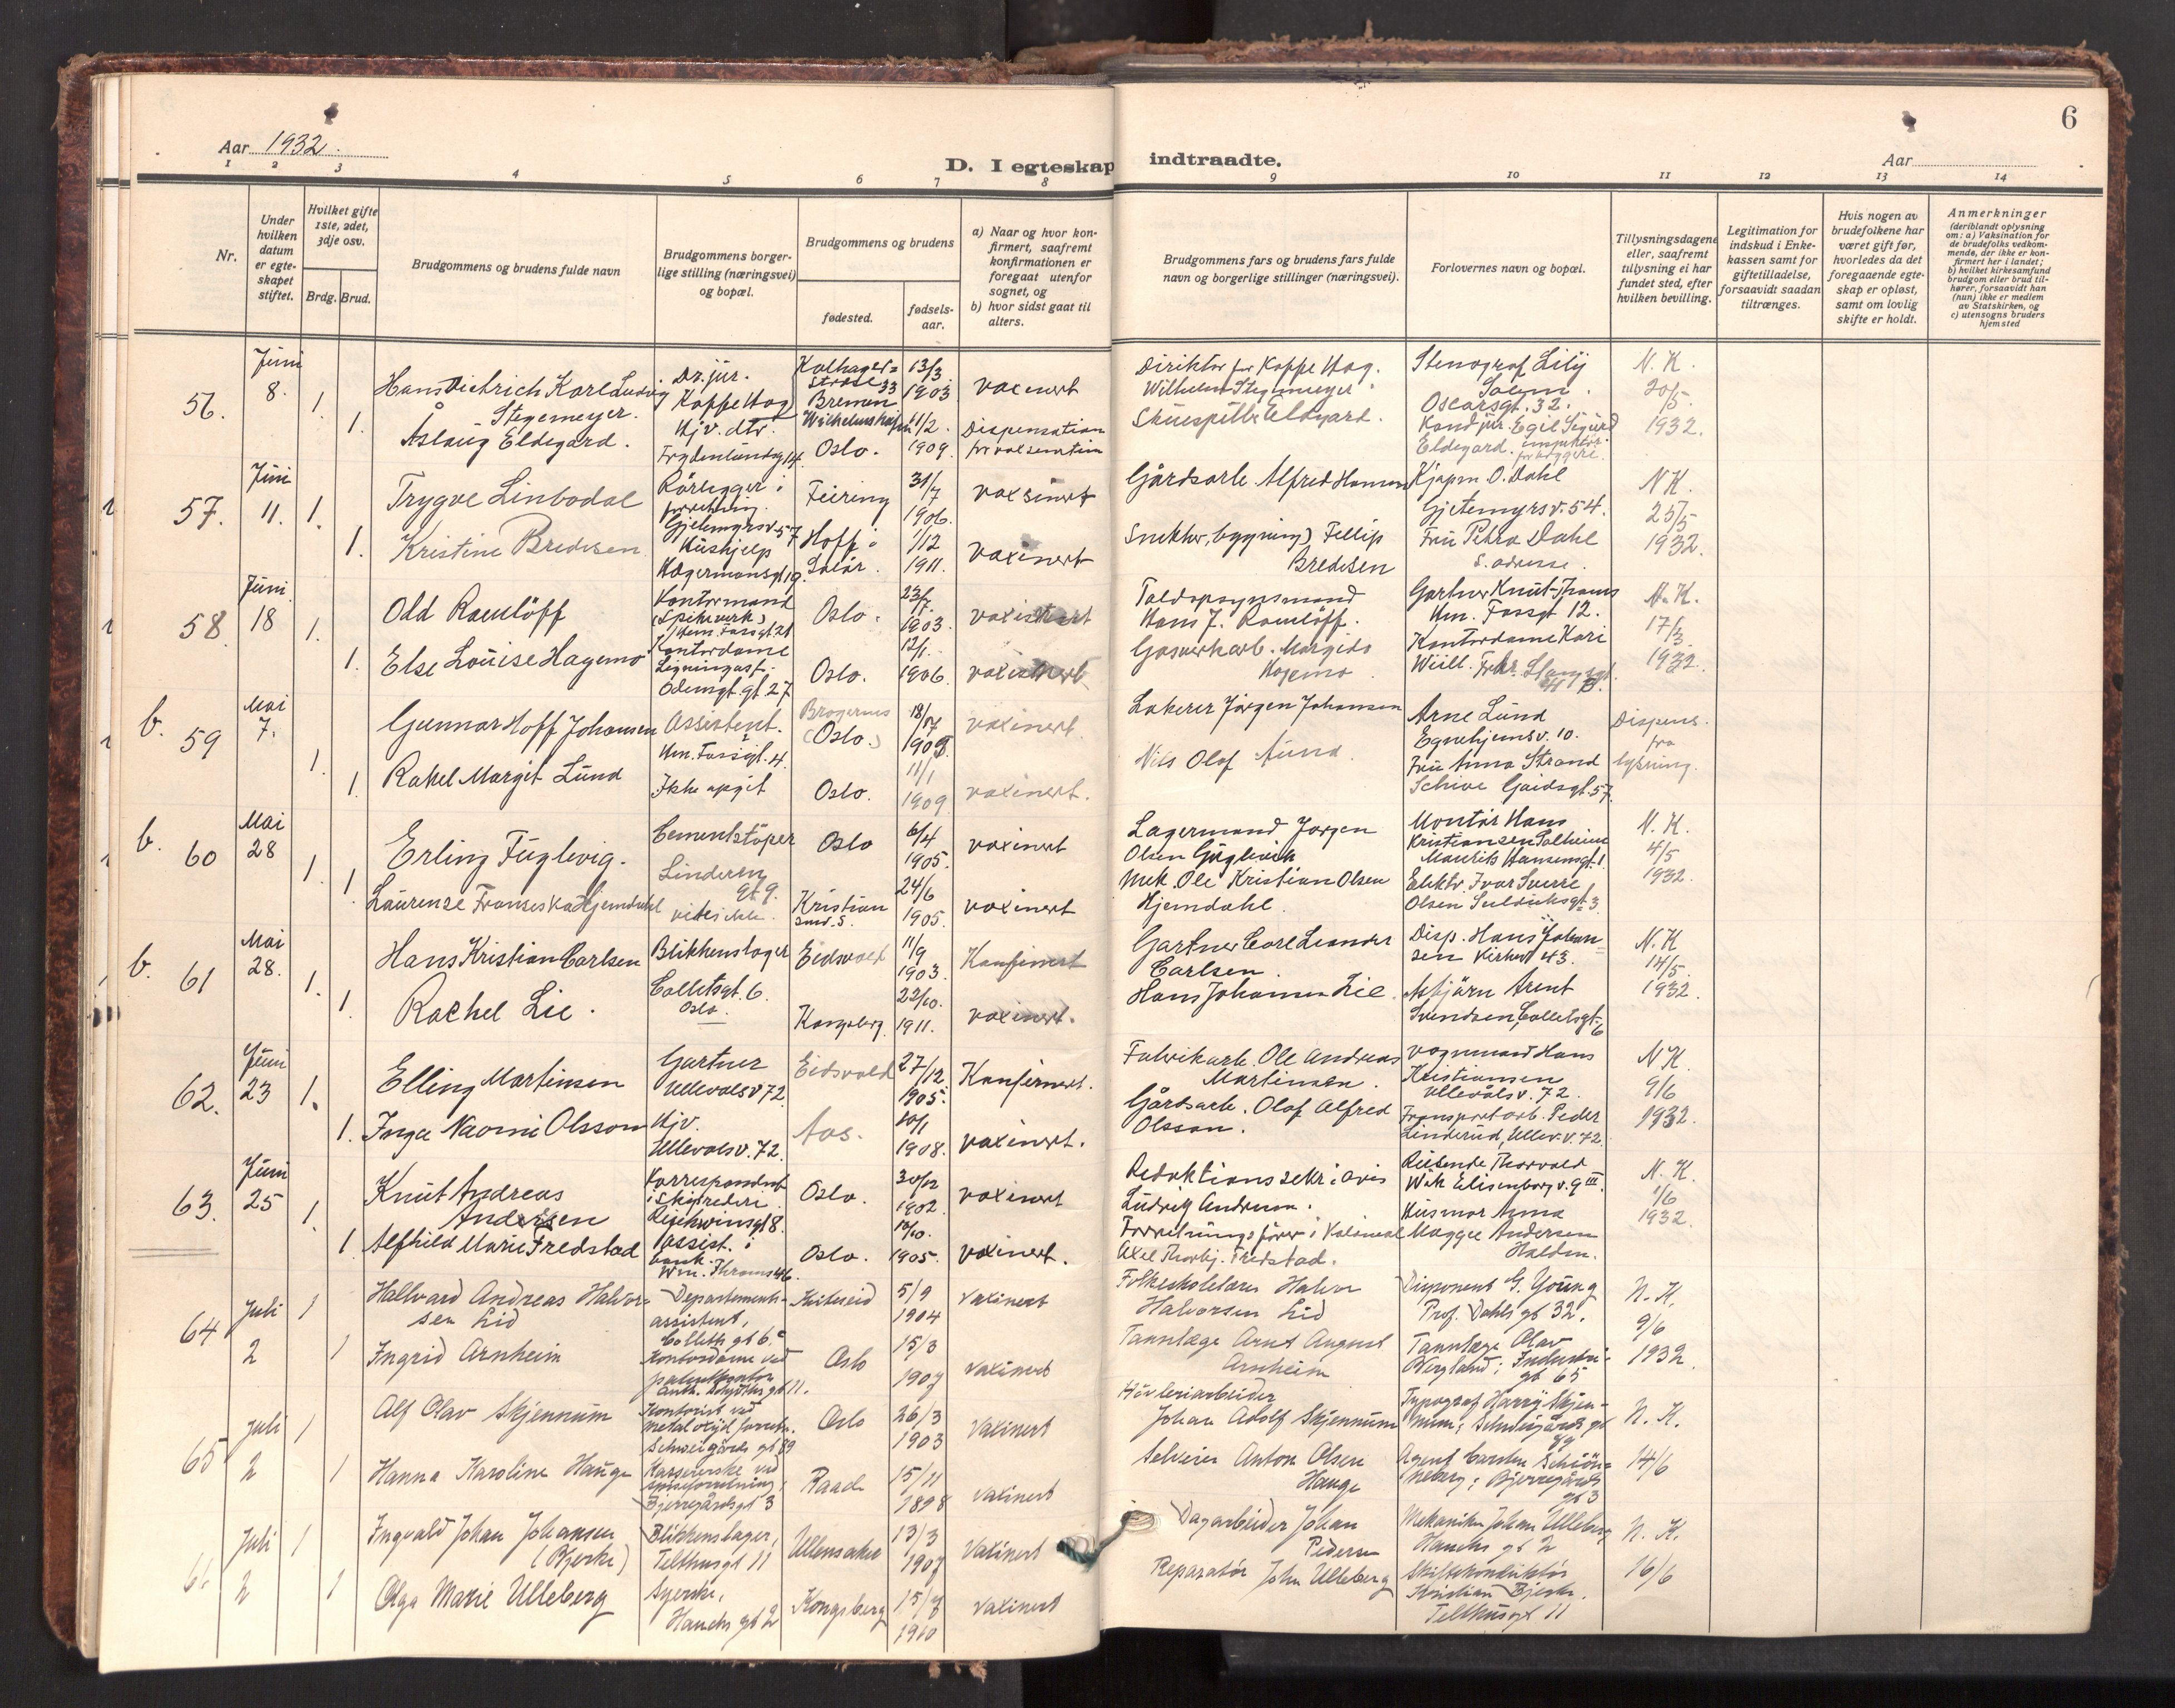 6
Aar 1932.
D. I egteskap indtraadte.
Aar
1 2 3 4 5 6 7 8 9 10 11 12 13 14
Nr.
Under hvilken datum er egteskapet stiftet.
Hvilket gifte 1ste, 2det, 3dje osv.
Brdg. Brud.
Brudgommens og brudens fulde navn
Brudgommens borgerlige stilling (næringsvei) og bopæl.
Brudgommens og brudens
fødested.
fødselsaar.
a) Naar og hvor konfirmert, saafremt konfirmationen er foregaat utenfor sognet, og
b) hvor sidst gaat til alters.
Brudgommens fars og brudens fars fulde navn og borgerlige stillinger (næringsvei).
Forlovernes navn og bopæl.
Tillysningsdagene eller, saafremt tillysning ei har fundet sted, efter hvilken bevilling.
Legitimation for indskud i Enkekassen samt for giftetilladelse, forsaavidt saadan tiltrænges.
Hvis nogen av brudefolkene har været gift før, hvorledes da det foregaaende egteskap er opløst, samt om lovlig skifte er holdt.
Anmerkninger
(deriblandt oplysning om: a) Vaksination for de brudefolks vedkommende, der ikke er konfirmert her i landet; b) hvilket kirkesamfund brudgom eller brud tilhører, forsaavidt han (hun) ikke er medlem av Statskirken, og c) utensogns bruders hjemsted
56. Juni 8. 1. Hans Diehrich Karl Ludvig Stegemeyer. Dr. jur. Kaffe Hag Bremen 13/3 1903 vaxinert
Direktør for Kaffe Hag. Wilhelm Stegemeyer. Stenograf Lily Salem. Oscarsgt. 32. N. K. 20/5 1932.
1. Åslaug Eldegard. Hjv. dtr. Frydenlundg 14 Oslo. 11/2. 1909. Dispensation for vaksination
Skuespiller Eldegard. Kand jur. Egil Sigurd Eldegard.
57. Juni 11. 1. Trygve Linbodal Rörlegger i forretning. Gjetemyrsv. 57 Feiring 31/7 1906. vaxsinert
Gårdsarb. Alfred Hansen Kjøpm O. Dahl Gjetemyrsv. 54. N K. 25/5 1932.
1. Kristine Bredesen Hushjelp Hægermansgt 19. Hoff i Solör. 1/12 1911. vaxinert
Snekker, bygning) Fellip Bredesen Fru Petra Dahl S. adresse.
58. Juni 18 1. Odd Ramlöff Kontormand (Spikerverk) Hm. Fossgt 21 Oslo. 1903. vaxinert
Toldopsynsmand Hans J. Ramlöff. Gartner Knut Thams Hm. Fossgt 12. N. K. 17/3 1932.
1. Else Louise Hagemo Kontordame Odensgt. 27 Oslo. 12/1. 1906. vaxinert
Gasverkarb. Hagemo Kontordame Kari
b. 59 Mai 7. 1. Gunnar Hoff Johansen Assistent. Hm. Fossgt. 4. Bragernes (Oslo.) vaxinert.
Lakerer Jørgen Johansen Arne Lund Egnehjemsv. 10. Dispens. fra lysning.
1. Rakel Margit Lund Ikke opgit Oslo. 11/1 1909 vaxinert.
Nils Olof Lund. Fru Anna Strand Schive
b. 60 Mai 28 1. Erling Fuglevig. Cementstöper Oslo 6/4 1905. vaxinert
Lagermand Jorgen Olsen Montör Hans Kristiansen N. K. 4/5 1932.
1. Laurense Franseska Hjemdahl Kristiansund. S. 24/6 1905. vaxinert
Mek. Ole Kristian Olsen Hjemdahl. Elektr. Ivar Sverre Olsen
b. 61 Mai 28. 1. Hans Kristian Carlsen Blikkenslager Colletsgt. 6. Oslo. Eidsvold 11/9 1903. Konfirmert
Gartner Carl Leander Carlsen. Disp. Hans Johansen Kirkev 43. N. K 14/5. 1932.
1. Rachel Lie. Kongsberg. 22/10. 1911. vaxinert.
Hans Johansen Lie Asbjörn Arent Svendsen, Colletsgt. 6
62. Juni 23 1. Elling Martinsen Gartner Ullevålsv 72. Eidsvold 27/12 1905. Konfirmert.
Fabrikarb. Ole Andreas Martinsen. Vognmand Hans Kristiansen Ullevålsv. 72. N K. 9/6 1932.
1. Inga Naomi Olsson Hjv. Ullevålsv. 72. 1908. vaxinert.
Gårdsarb. Olof Alfred Olsson. Transportarb. Peder Linderud, Ullev. v. 72.
63. Juni 25 1. Knut Andreas Andersen Korrespondent i Skipsrederi 8. Oslo. 30/12 1902. vaxinert
Redaktionssekr. i avis Ludvig Andersen. Reisende Thorvald Elisenbergv. 9 III. N. K. 1/6 1932.
1 Alfhild Marie Fredstad Assist. i bank. Wm. Thranes 46. Oslo. 10/10. 1905. vaxinert.
Forretningsfører i Kolonial Axel Thorbj. Fredstad. Husmor Anna Maggie Andersen Halden.
64 Juli 2 1 Hallvard Andreas Halvorsen Lid Departementsassistent, Colletts gt 6. Kviteseid 5/9 1904 Vaxinert
Folkeskolelærer Halvor Halvorsen Lid Disponent G. Young Prof. Dahls gt 32. N. K. 9/6 1932
1 Ingrid Arnheim Kontordame ved patentkontor Anth. Schjøths gt 11. Oslo 15/3 1907 vaxinert
Tannlæge Arnt August Arnheim Tannlæge Olav Bergland; Industrigt 65
65 Juli 2 1 Alf Olav Skjennum Kontorist ved Schweigårds gt 89 Oslo 26/3 1903 Vaxinert
Høvleriarbeider Johan Adolf Skjennum Typograf Harry Skjennum; Schweigårds gt 89 N. K. 14/6
1 Hanna Karoline Hauge Kassererske ved Bjerregårdsgt 3 Raade 15/11 1898 Vaxinert
Selveier Anton Olsen Hauge Agent Carsten Schiönneberg; Bjerregårds gt 3
66 Juli 2 1 Ingvald Johan Johansen (Bjerke) Blikkenslager, Telthusgt 11 Ullensaker 13/3 1907 Vaxinert
Dagarbeider Johan Pedersen Mekaniker Johan Ulleberg Hauchs gt 2 N. K. 16/6
1 Olga Marie Ulleberg Syerske, Hauchs gt 2 Kongsberg 1910 Vaxinert
Reparatør John Ulleberg Kristian Bjerke. Telthusgt 11